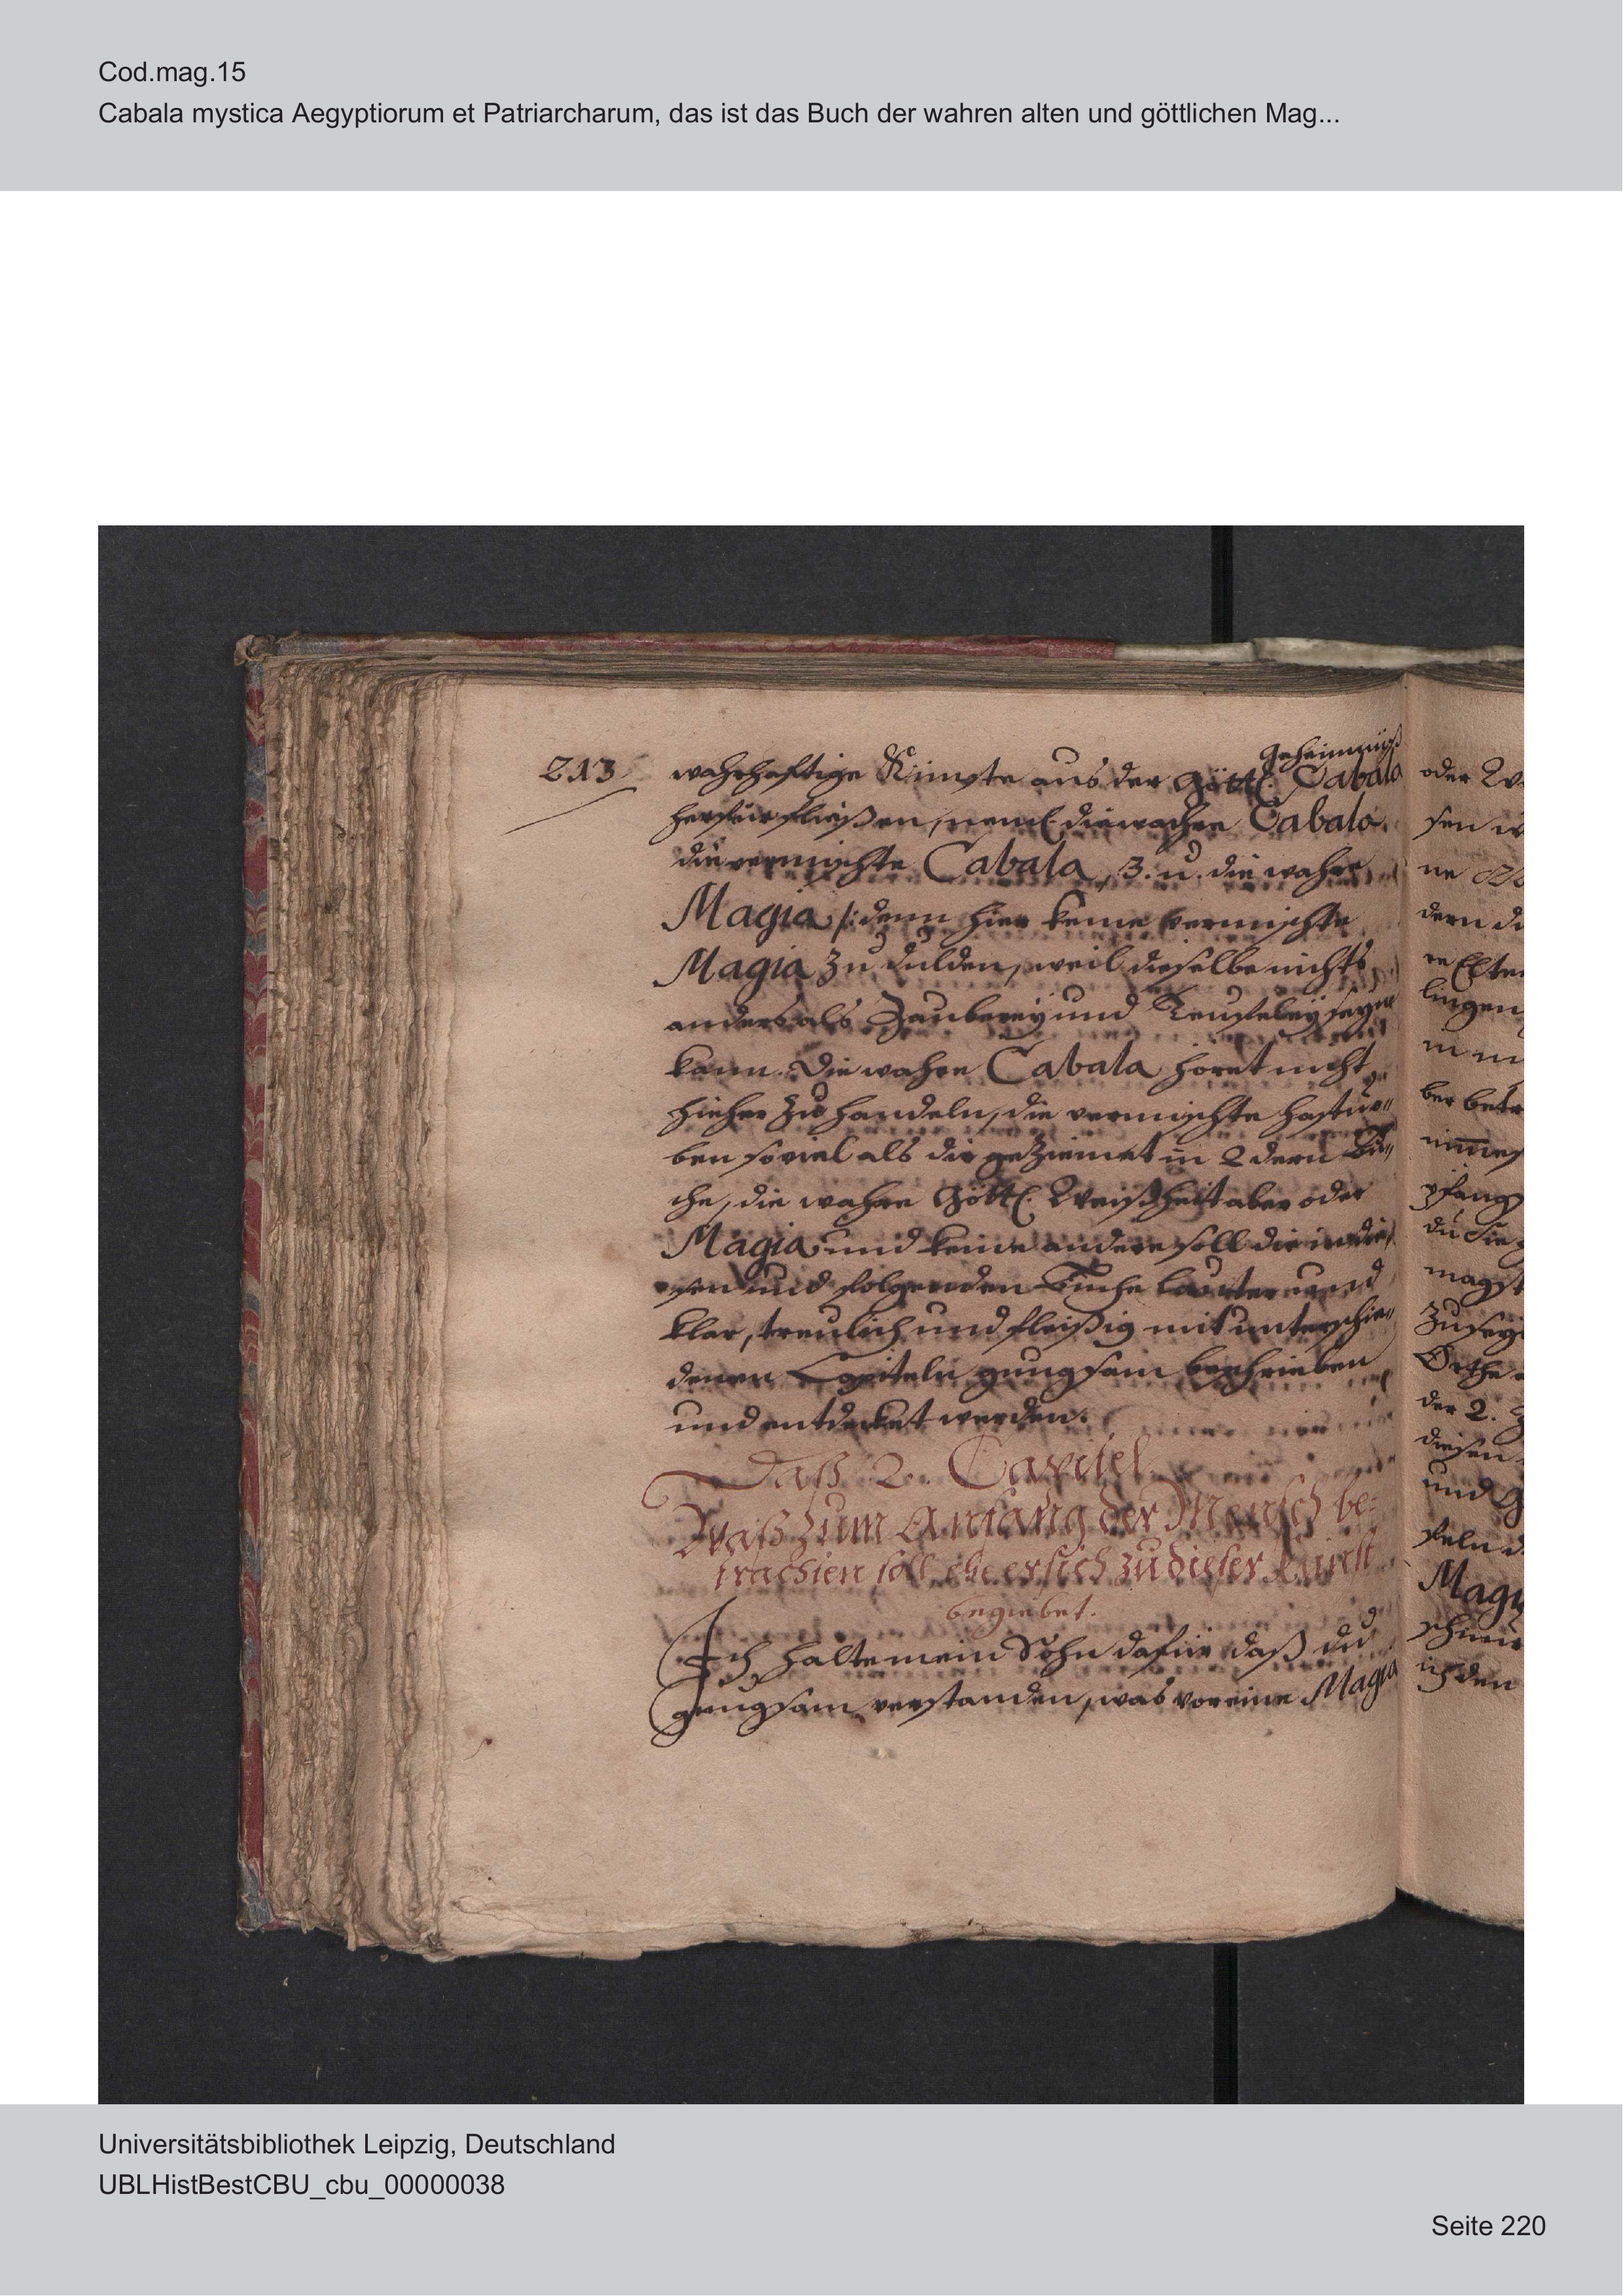 Cod.mag.15
Cabala mystica Aegyptiorum et Patriarcharum, das ist das Buch der wahren alten und göttlichen Mag...
213
Geheimnüß
wahrhaftige Künste aus der Göttl. Cabala
herfürfließen, neml. die wahre Cabala.
die vermischte Cabala, 3. u. die wahre
Magia /: denn hier keine vermischte
Magia zu dulden, weil dieselbe nichts
anders als Zauberey und Teufeley seyn
kann. Die wahre Cabala höret nicht
hieher zu handeln, die vermischte hastu
ben soviel als dir geziemet in 2 dern Bü"
che, die wahre Göttl. Weißheit aber oder
Magia und keine andere soll dir in die
sen und folgenden Buche lauter und
klar, treulich und fleißig mit unterschie"
denen Capiteln gungsam beschrieben
und entdecket werden.
Daß 2. Capitel
Waß zum Anfang der Mensch be:
trachten soll, ehe er sich zu dieser Kunst
begiebet.
Ich halte mein Sohn dafür daß du
gungsam verstanden, was vor eine Magia
oder
sen
ne
dern
lingen
ber
du die
magst
Orthe
der 2.
diesen
und
Magi
den
Universitätsbibliothek Leipzig, Deutschland
UBLHistBestCBU_cbu_00000038
Seite 220